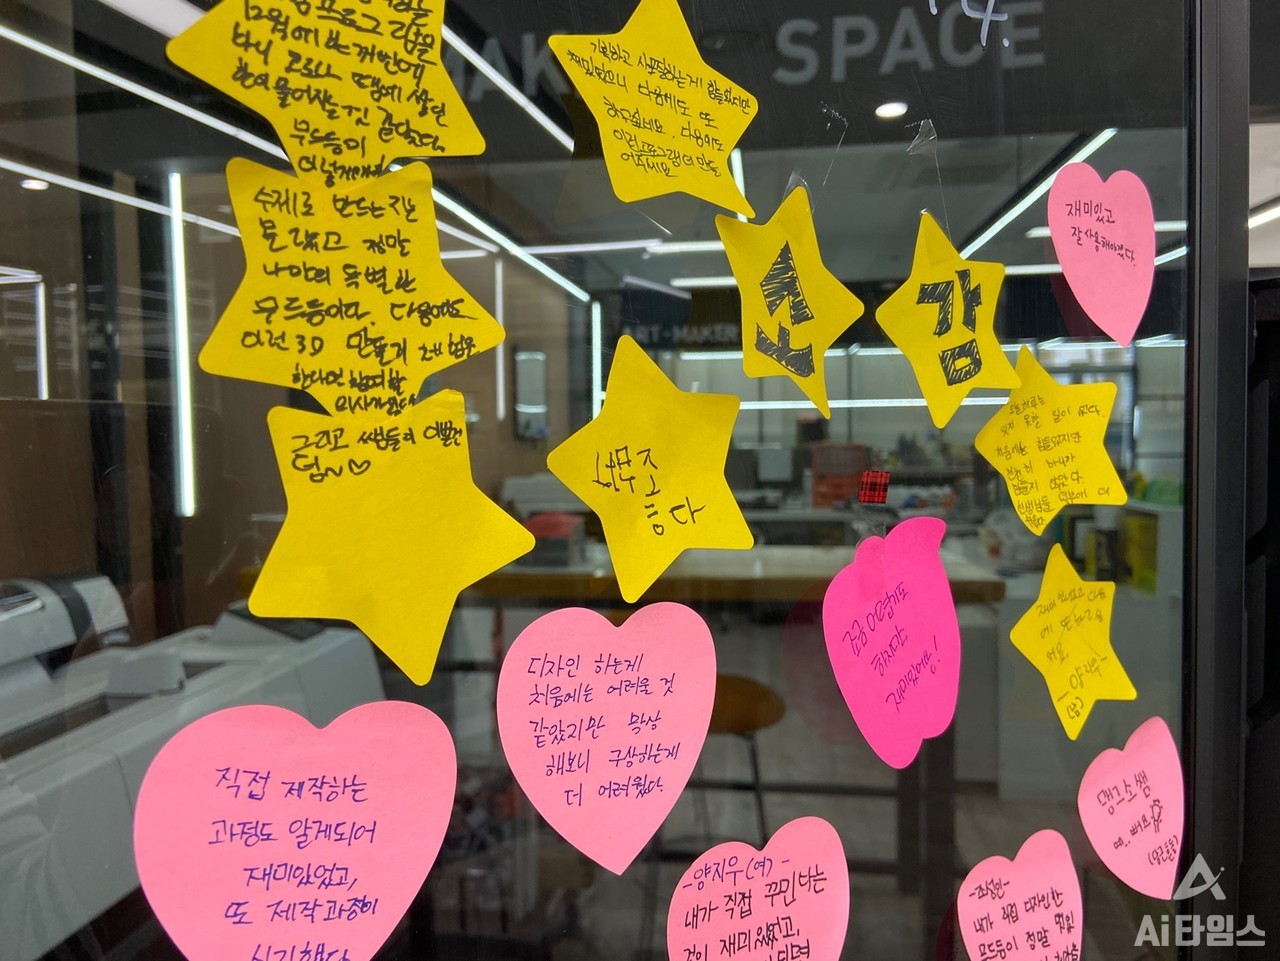 MAK
SPACE
4.
12월에
무드등이
기획하고 사포질하는게 힘들었지만
재미있었으니 다음에도 또
하구싶네요. 다음에도
이런 프로그램 더 만들
어주세요
수제로 만드는 줄은
몰랐었고 정말
나만의 특별한
무드등이다. 다음에도
이런 3D 만들기 체험을
한다면 참여할
의사가 있다
그리고 쌤들이 이쁘던
덥~♡
소
감
재미있고
잘 사용해야겠다.
ART · MAKER
너무 조
흥다
오늘하루는
잊지 못할 일이 같다.
처음에는 힘들었지만
천천히 하니까
힘들지 않았다.
선생님들 덕분에 더
재미있었고 다음
에 또
- 양지우 -
(남)
조금 어렵기도
하지만
재미있어요!
디자인 하는게
처음에는 어려울 것
같았지만 막상
해보니 구상하는게
더 어려웠다.
직접 제작하는
과정도 알게되어
재미있었고,
또 제작과정이
신기했다
-양지우(여)-
내가 직접 꾸민다는
것이 재미있었고,
-조성민-
내가 직접 디자인한
무드등이 정말 멋있
땡그소쌤
예뻐요
Ai타임스